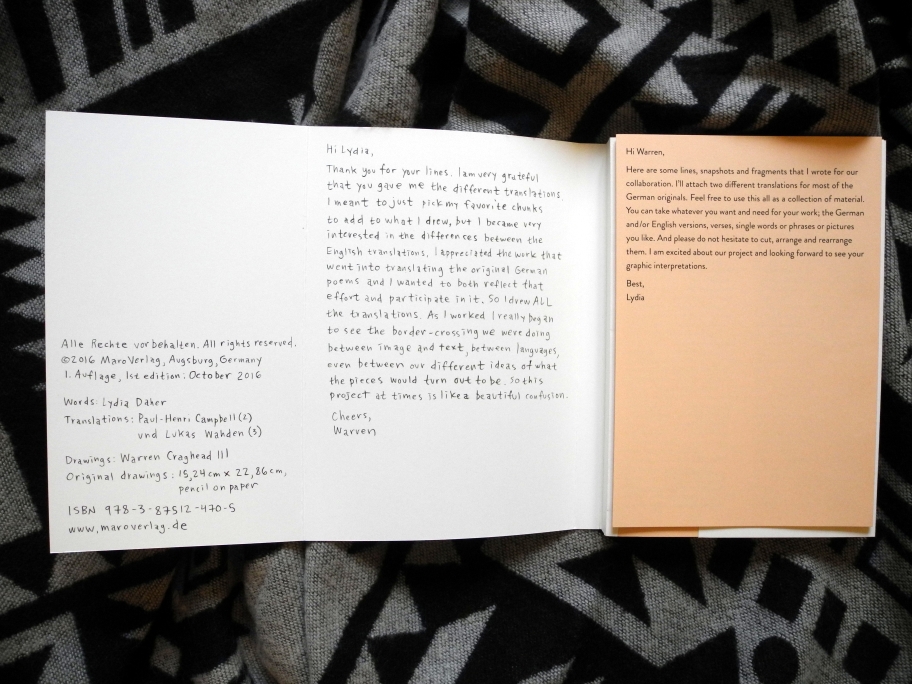 Alle Rechte vorbehalten. All rights reserved.
©2016 MaroVerlag, Augsburg, Germany
1. Auflage, 1st edition: October 2016
Words: Lydia Daher
Translations: Paul-Henri Campbell (2)
und Lukas Wahden (3)
Drawings: Warren Craghead III
Original drawings: 15,24cm x 22,86cm,
pencil on paper
ISBN 978-3-87512-470-5
www.maroverlag.de
Hi Lydia,
Thank you for your lines. I am very grateful
that you gave me the different translations.
I meant to just pick my favorite chunks
to add to what I drew, but I became very
interested in the differences between the
English translations. I appreciated the work that
went into translating the original German
poems and I wanted to both reflect that
effort and participate in it. So I drew ALL
the translations. As I worked I really began
to see the border-crossing we were doing
between image and text, between languages,
even between our different ideas of what
the pieces would turn out to be. So this
project at times is like a beautiful confusion.
Cheers,
Warren
Hi Warren,
Here are some lines, snapshots and fragments that I wrote for our
collaboration. I'll attach two different translations for most of the
German originals. Feel free to use this all as a collection of material.
You can take whatever you want and need for your work; the German
and/or English versions, verses, single words or phrases or pictures
you like. And please do not hesitate to cut, arrange and rearrange
them. I am excited about our project and looking forward to see your
graphic interpretations.
Best,
Lydia